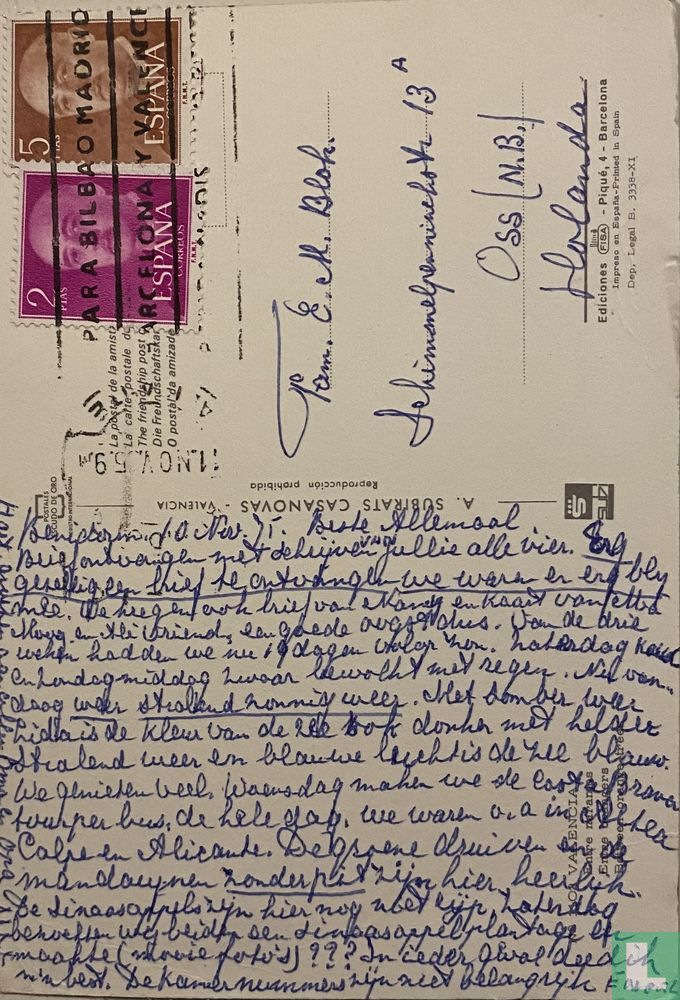 5 PTAS
ESPAÑA
CORREOS
F.N.M.T.
2 PTAS
ESPAÑA
CORREOS
F.N.M.T.
PARA BILBAO MADRID
BARCELONA Y VALENCIA
11.NOV.75.9
La postal de la amist
La carte postale de
The friendship post
Die Freundschaftskar
O postàl da amizade
Fam. E. M. Blok.
Schimmelpenninckstr 13 A
Oss (N.B.)
Holanda
Ediciones FISA - Piqué, 4 - Barcelona
Impreso en España-Printed in Spain
Dep. Legal B. 3338-XI
Reproducción prohibida
A. SUBIRATS CASANOVAS - VALENCIA
POSTALES
ESCUDO DE ORO
Benidorm, 10 Nov. 75. Beste Allemaal.
Brief ontvangen met schrijven van jullie alle vier. Erg
gezellig, een brief te ontvangen we waren er erg bly
mee. We kregen ook brief van en kaart van
en vriend, een goede dus. Van de drie
weken hadden we nu 19 dagen volop zon. Zaterdag
en Zondagmiddag zwaar bewolkt met regen. Nu van-
daag weer stralend zonnig weer. Met somber weer
is de kleur van de zee ook donker met helder
stralend weer en blauwe lucht is de zee blauw.
We genieten veel. Woensdag maken we de Costa
tour per bus, de hele dag. we waren o.a in Althea
Calpe en Alicante. De groene druiven en de
mandarynen zonder pit zijn hier heerlijk.
De Sinaasappels zijn hier nog niet rijp. Zaterdag
bezochten wij beiden een Sinaasappelplantage en
maakte (mooie foto's) ??? In ieder geval deed ik
m'n best. De kamernummers zijn niet belangrijk
VALENCIA